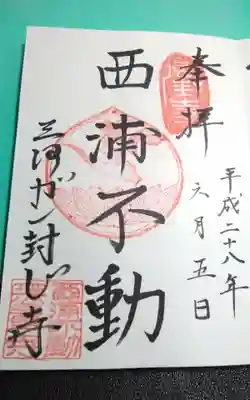 奉拝
平成二十八年
六月五日
西浦不動
三河ガン封じ寺